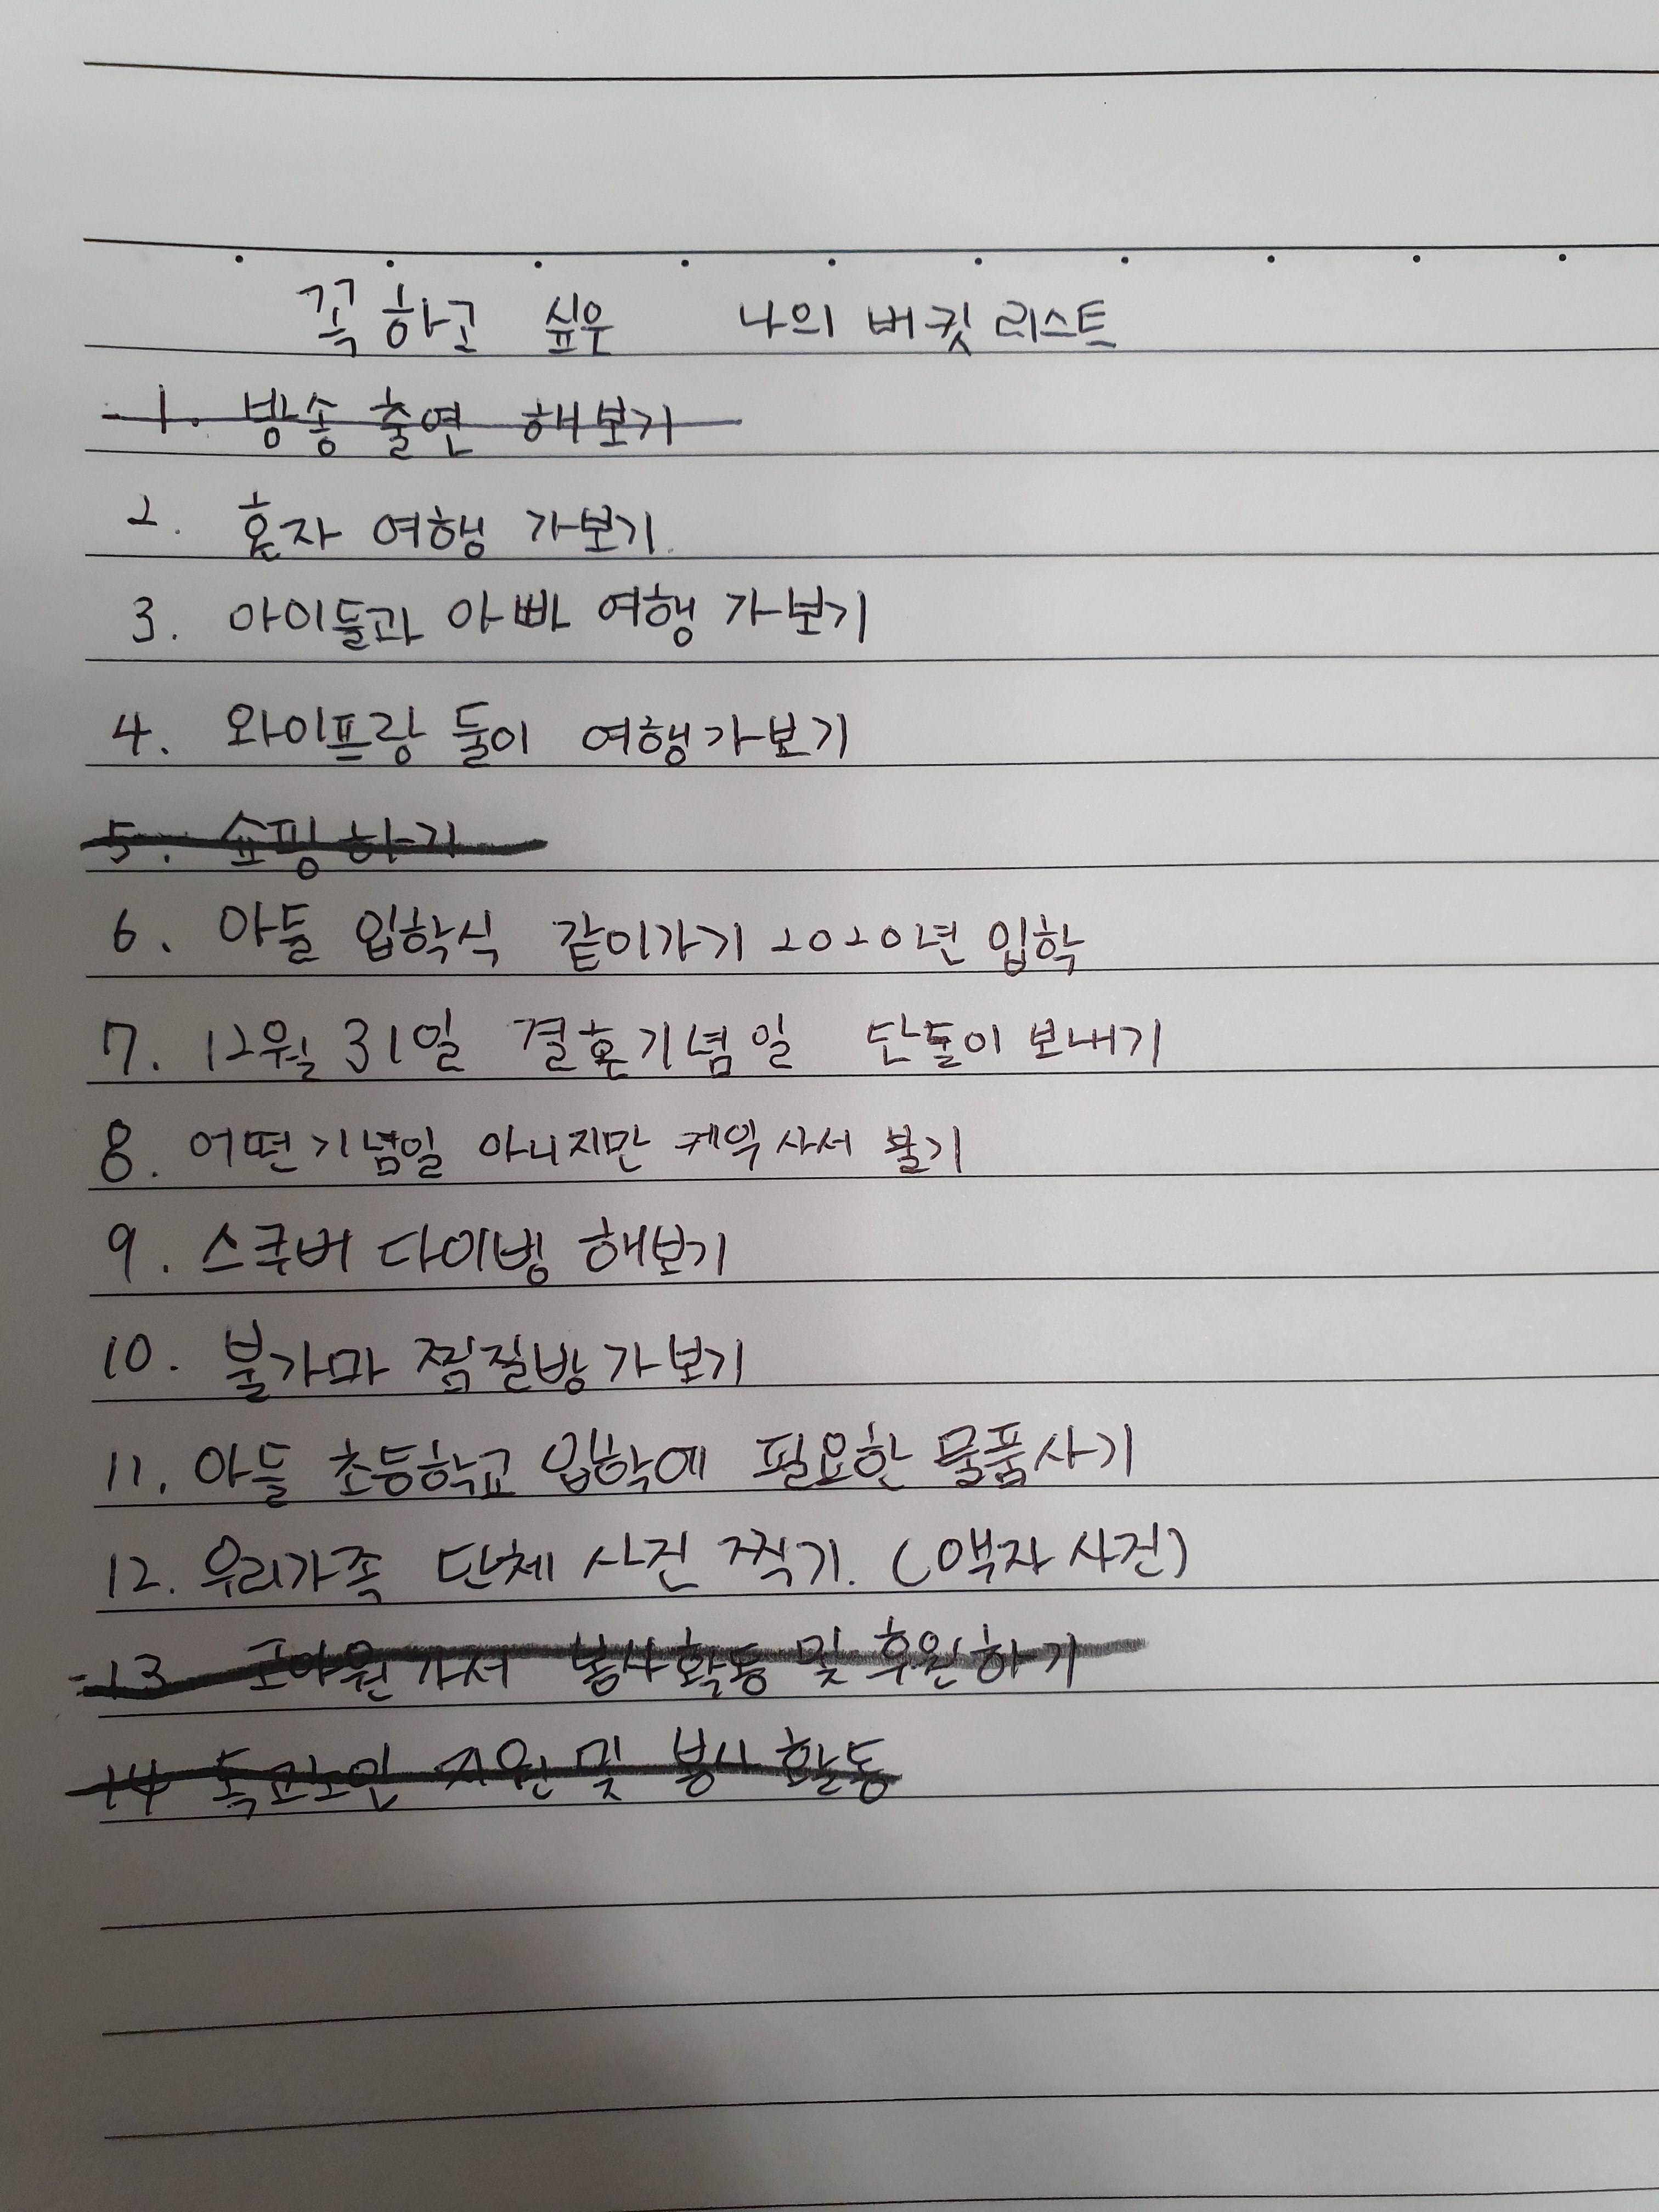 꼭 하고 싶우 나의 버킷 리스트
1. 방송 출연 해보기
2. 혼자 여행 가보기.
3. 아이들과 아빠 여행 가보기
4. 와이프랑 둘이 여행가보기
5. 쇼핑하기
6. 아들 입학식 같이가기 2020년 입학
7. 12월 31일 결혼기념일 단둘이 보내기
8. 어떤기념일 아니지만 케익사서 불기
9. 스쿠버 다이빙 해보기
10. 불가마 찜질방 가보기
11. 아들 초등학교 입학에 필요한 물품사기
12. 우리가족 단체 사진 찍기. (액자 사진)
13 고아원가서 봉사활동 및 후원하기
14 독고노인 지원 및 봉사 활동